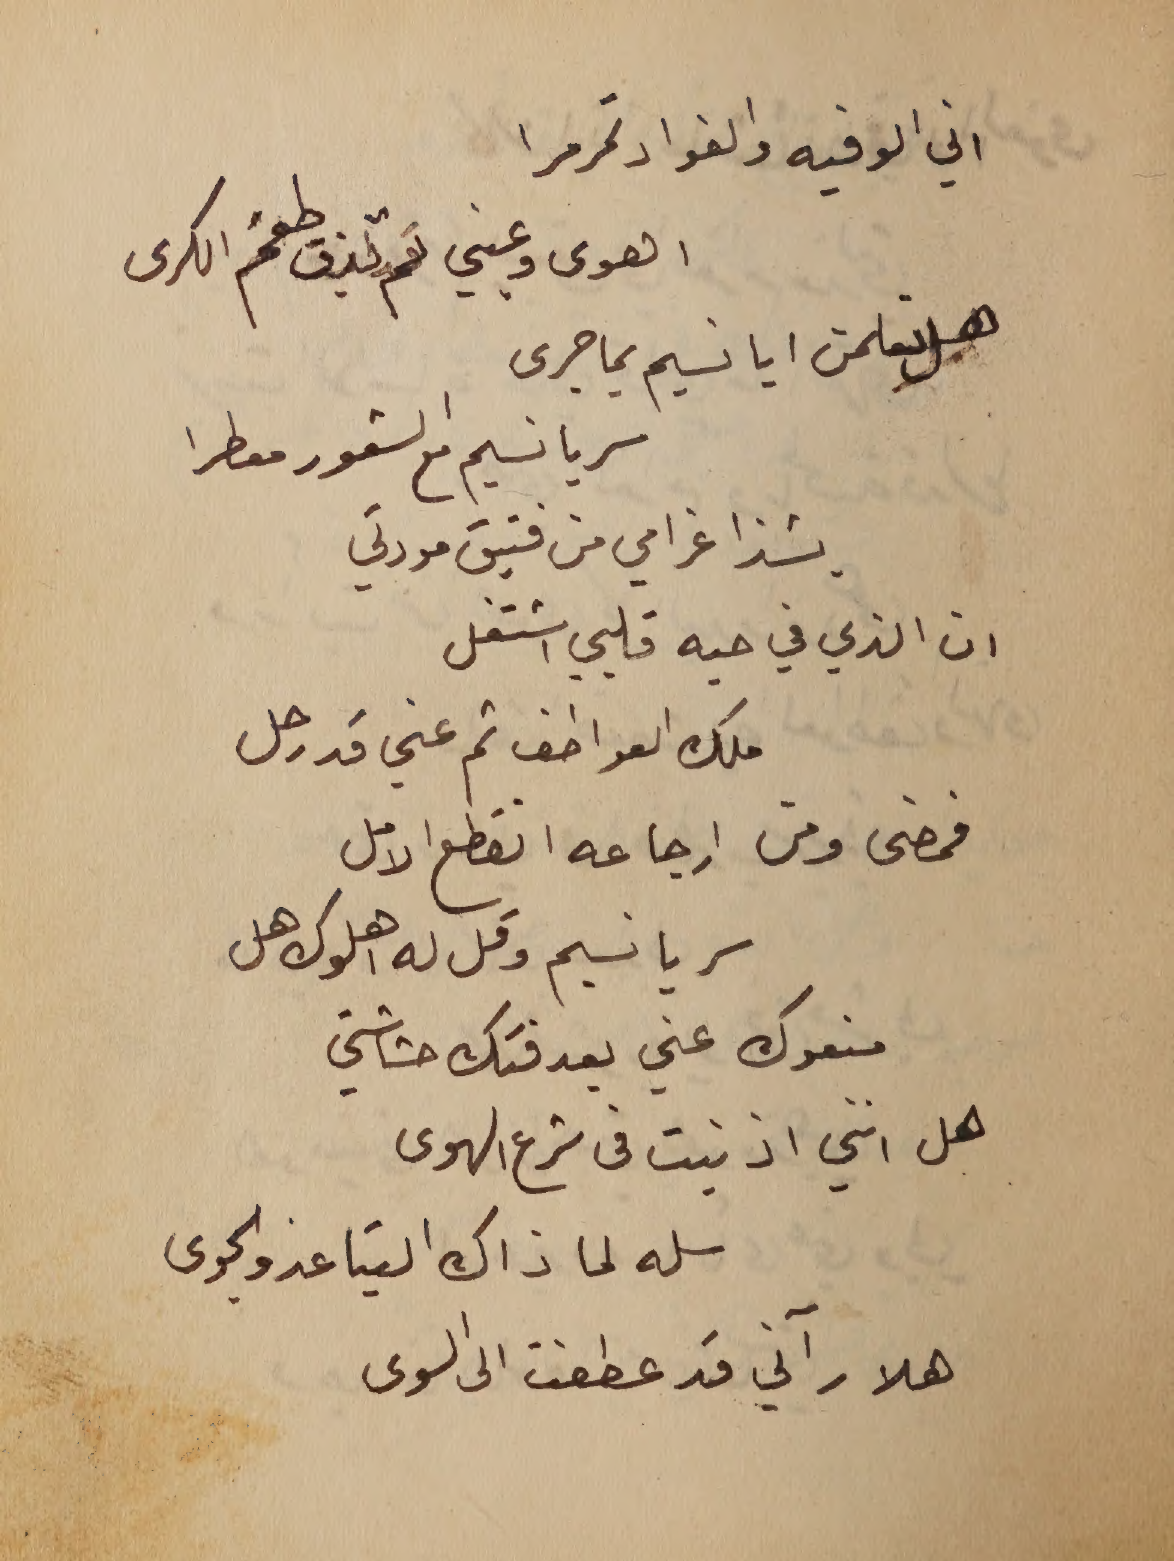 اني الوفيه والفواد تمرمرا
الهوى وعيني لم تذق طعم الكرى
هل تعلمن ايا نسيم بما جرى
سر يا نسيم مع الشعور معطرا
بشذا غرامي من فتيق مودتي
ان الذي في حبه قلبي اشتغل
ملك العواطف ثم عني قد رحل
فمضى ومن ارجاعه انقطع الامل
سر يا نسيم وقل له اهلوك هل
منعوك عني بعد فتك حشاشتي
هل انني اذنبت في شرع الهوى
سله لما ذاك التباعد والجوى
هلا رآني قد عطفت الى السوى